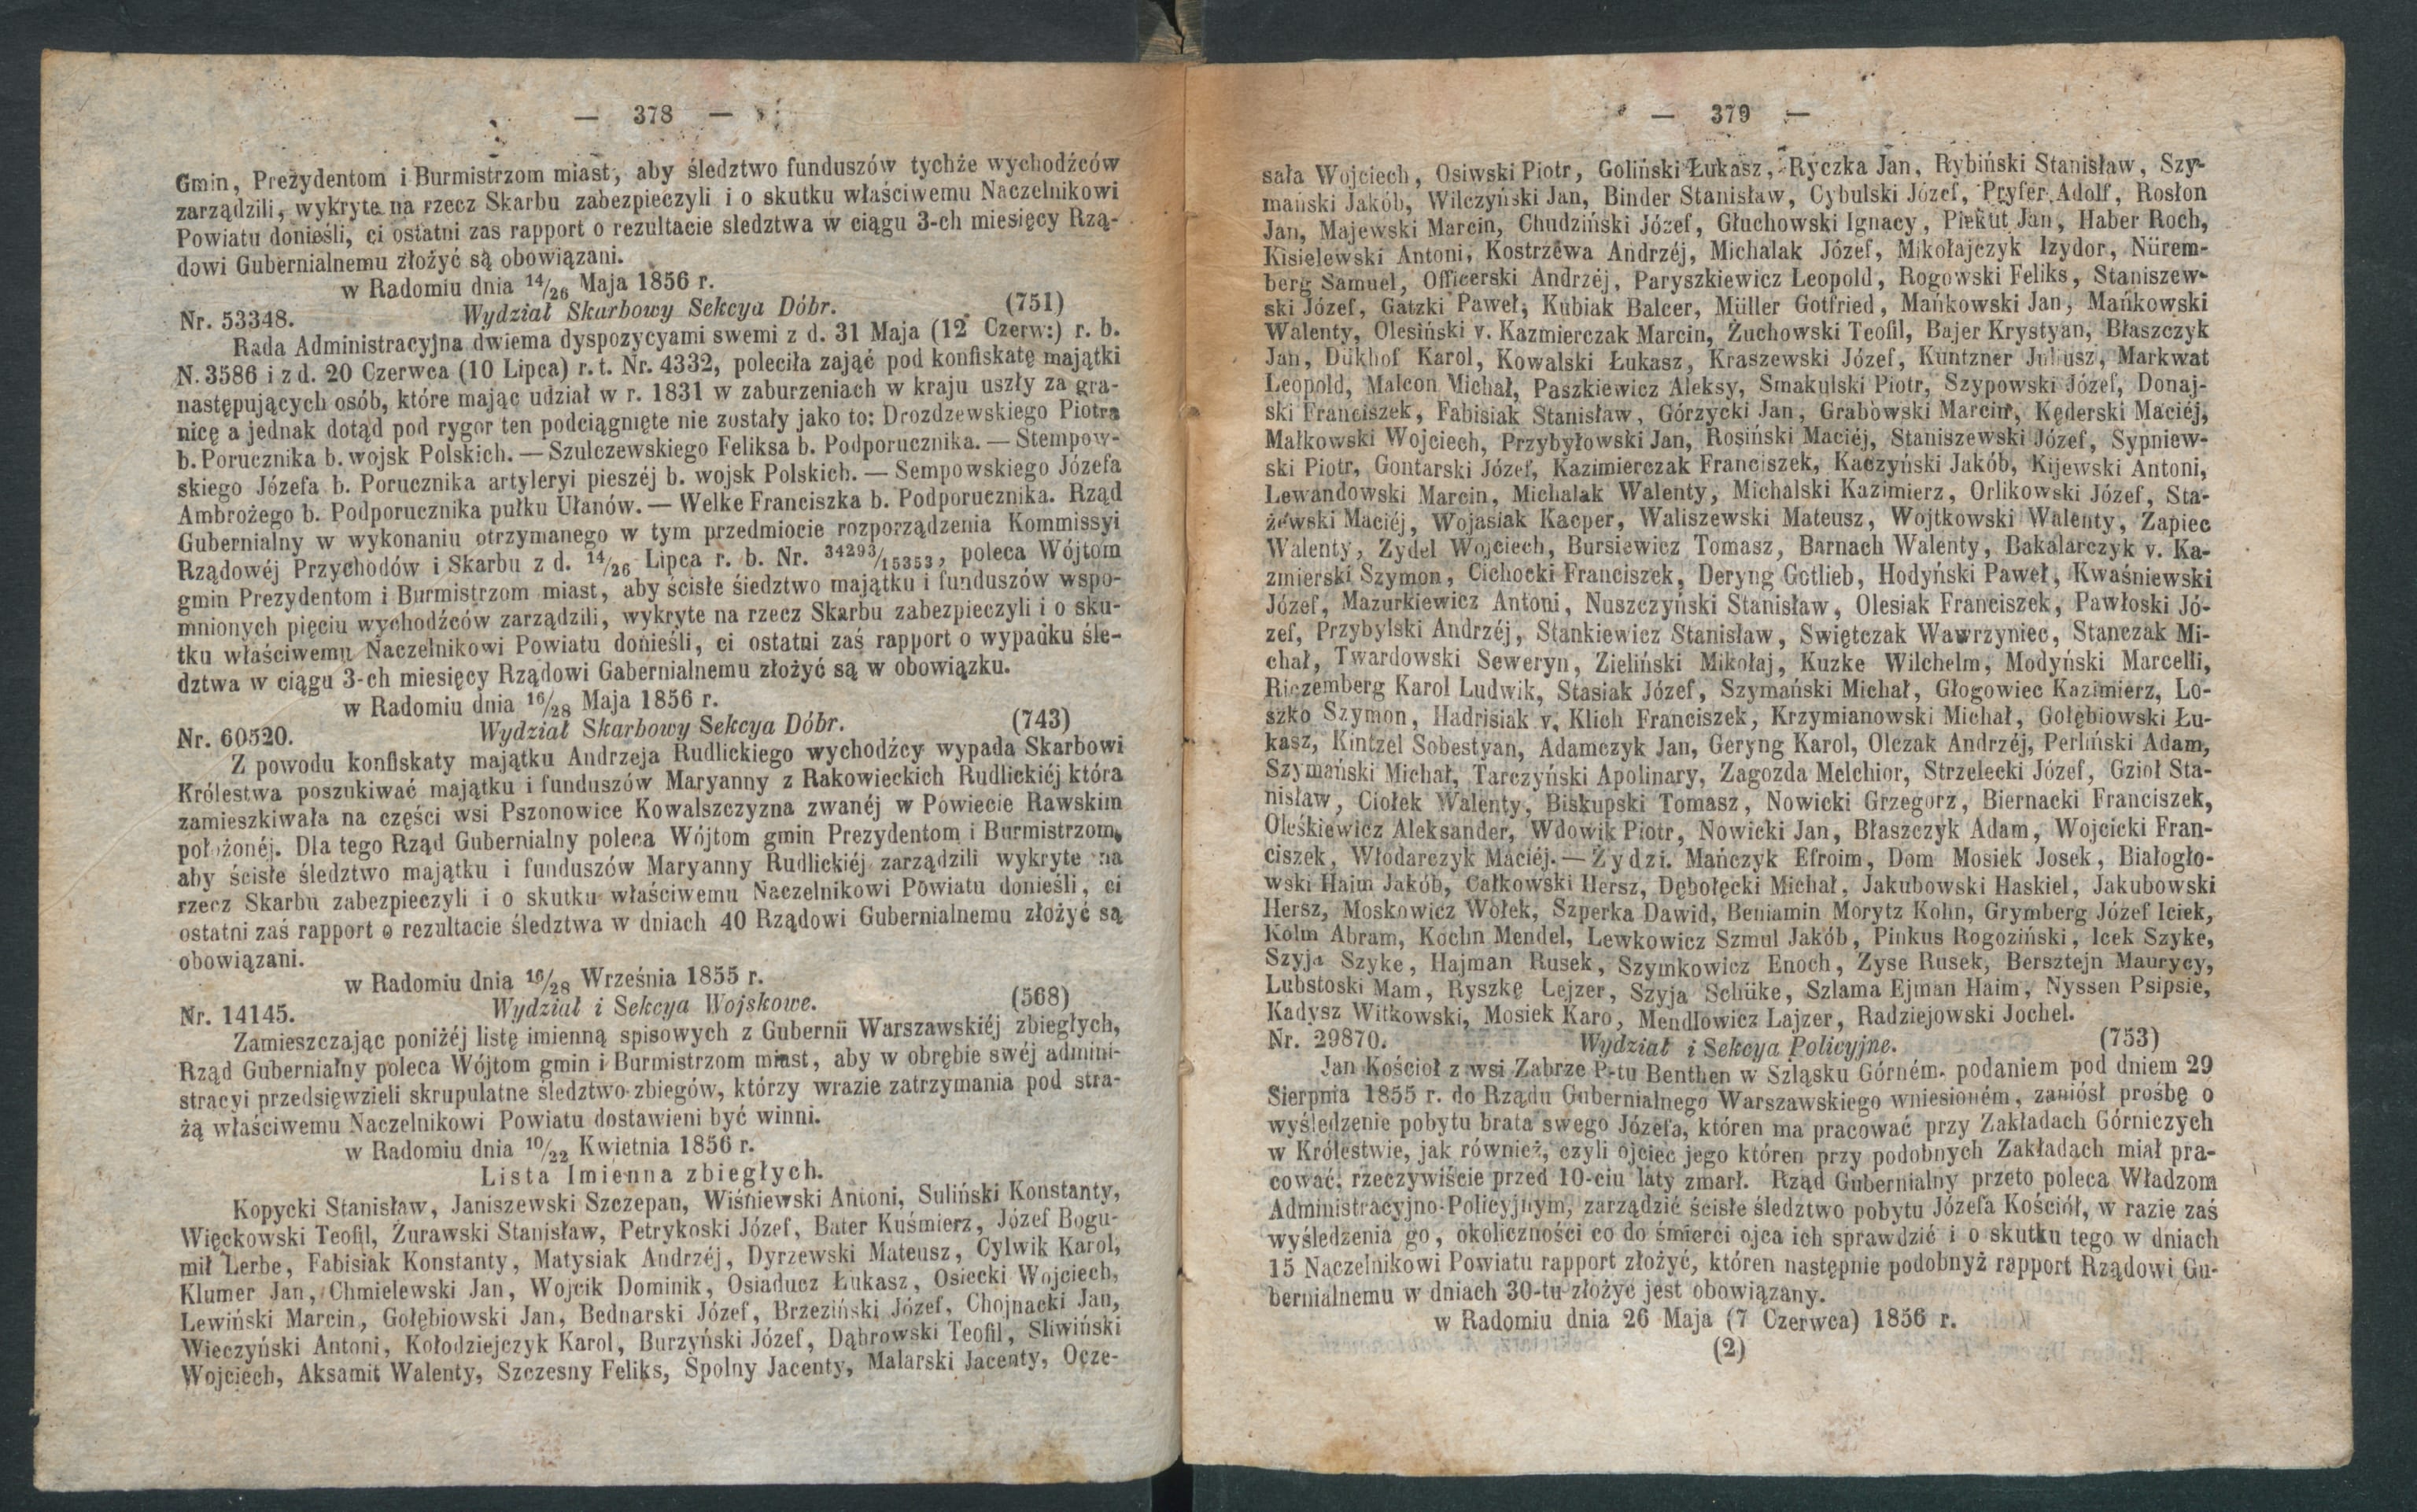 — 378 —
Gmin, Prezydentom i Burmistrzom miast, aby śledztwo funduszów tychże wychodźców
zarządzili, wykryte na rzecz Skarbu zabezpieczyli i o skutku właściwemu Naczelnikowi
Powiatu donieśli, ci ostatni zas rapport o rezultacie sledztwa w ciągu 3-ch miesięcy Rzą-
dowi Gubernialnemu złożyć są obowiązani.
w Radomiu dnia 14/26 Maja 1856 r.
Nr. 53348. Wydział Skarbowy Sekcya Dóbr. (751)
Rada Administracyjna dwiema dyspozycyami swemi z d. 31 Maja (12 Czerw:) r. b.
N. 3586 i z d. 20 Czerwca (10 Lipca) r. t. Nr. 4332, poleciła zająć pod konfiskatę majątki
następujących osób, które mając udział w r. 1831 w zaburzeniach w kraju uszły za gra-
nicę a jednak dotąd pod rygor ten podciągnięte nie zostały jako to: Drozdzewskiego Piotra
b. Porucznika b. wojsk Polskich. — Szulczewskiego Feliksa b. Podporucznika. — Stempow-
skiego Józefa b. Porucznika artyleryi pieszéj b. wojsk Polskich. — Sempowskiego Józefa
Ambrożego b. Podporucznika pułku Ułanów. — Welke Franciszka b. Podporucznika. Rząd
Gubernialny w wykonaniu otrzymanego w tym przedmiocie rozporządzenia Kommissyi
Rządowéj Przychodów i Skarbu z d. 14/26 Lipca r. b. Nr. 34293/15353, poleca Wójtom
gmin Prezydentom i Burmistrzom miast, aby ścisłe śiedztwo majątku i funduszów wspo-
mnionych pięciu wychodźców zarządzili, wykryte na rzecz Skarbu zabezpieczyli i o sku-
tku właściwemu Naczelnikowi Powiatu donieśli, ci ostatni zaś rapport o wypadku śle-
dztwa w ciągu 3-ch miesięcy Rządowi Gabernialnemu złożyć są w obowiązku.
w Radomiu dnia 16/28 Maja 1856 r.
Nr. 60520. Wydział Skarbowy Sekcya Dóbr. (743)
Z powodu konfiskaty majątku Andrzeja Rudlickiego wychodźcy wypada Skarbowi
Królestwa poszukiwać majątku i funduszów Maryanny z Rakowieckich Rudlickiéj która
zamieszkiwała na części wsi Pszonowice Kowalszczyzna zwanéj w Powiecie Rawskim
położonéj. Dla tego Rząd Gubernialny poleca Wójtom gmin Prezydentom i Burmistrzom,
aby ścisłe śledztwo majątku i funduszów Maryanny Rudlickiéj zarządzili wykryte na
rzecz Skarbu zabezpieczyli i o skutku właściwemu Naczelnikowi Powiatu donieśli, ci
ostatni zaś rapport o rezultacie śledztwa w dniach 40 Rządowi Gubernialnemu złożyć są
obowiązani.
w Radomiu dnia 16/28 Września 1855 r.
Nr. 14145. Wydział i Sekcya Wojskowe. (568)
Zamieszczając poniżéj listę imienną spisowych z Gubernii Warszawskiéj zbiegłych,
Rząd Gubernialny poleca Wójtom gmin i Burmistrzom miast, aby w obrębie swéj admini-
stracyi przedsięwzieli skrupulatne śledztwo zbiegów, którzy wrazie zatrzymania pod stra-
żą właściwemu Naczelnikowi Powiatu dostawieni być winni.
w Radomiu dnia 10/22 Kwietnia 1856 r.
Lista Imienna zbiegłych.
Kopycki Stanisław, Janiszewski Szczepan, Wiśniewski Antoni, Suliński Konstanty,
Więckowski Teofil, Żurawski Stanisław, Petrykoski Józef, Bater Kuśmierz, Józef Bogu-
mił Lerbe, Fabisiak Konstanty, Matysiak Andrzéj, Dyrzewski Mateusz, Cylwik Karol,
Klumer Jan, Chmielewski Jan, Wojcik Dominik, Osiaducz Łukasz, Osiecki Wojciech,
Lewiński Marcin, Gołębiowski Jan, Bednarski Józef, Brzeziński Józef, Chojnacki Jan,
Wieczyński Antoni, Kołodziejczyk Karol, Burzyński Józef, Dąbrowski Teofil, Sliwiński
Wojciech, Aksamit Walenty, Szczesny Feliks, Spolny Jacenty, Malarski Jacenty, Ocze-
— 379 —
sała Wojciech, Osiwski Piotr, Goliński Łukasz, Ryczka Jan, Rybiński Stanisław, Szy-
mański Jakób, Wilczyński Jan, Binder Stanisław, Cybulski Józef, Pryfer Adolf, Rosłon
Jan, Majewski Marcin, Chudziński Józef, Głuchowski Ignacy, Piekut Jan, Haber Roch,
Kisielewski Antoni, Kostrzewa Andrzéj, Michalak Józef, Mikołajczyk Izydor, Nürem-
berg Samuel, Officerski Andrzéj, Paryszkiewicz Leopold, Rogowski Feliks, Staniszew-
ski Józef, Gatzki Paweł, Kubiak Balcer, Müller Gotfried, Mańkowski Jan, Mańkowski
Walenty, Olesiński v. Kazmierczak Marcin, Żuchowski Teofil, Bajer Krystyan, Błaszczyk
Jan, Dükhof Karol, Kowalski Łukasz, Kraszewski Józef, Kuntzner Juliusz, Markwat
Leopold, Malcon Michał, Paszkiewicz Aleksy, Smakulski Piotr, Szypowski Józef, Donaj-
ski Franciszek, Fabisiak Stanisław, Górzycki Jan, Grabowski Marcin, Kęderski Maciéj,
Małkowski Wojciech, Przybyłowski Jan, Rosiński Maciéj, Staniszewski Józef, Sypniew-
ski Piotr, Gontarski Józef, Kazimierczak Franciszek, Kaczyński Jakób, Kijewski Antoni,
Lewandowski Marcin, Michalak Walenty, Michalski Kazimierz, Orlikowski Józef, Sta-
żewski Maciéj, Wojasiak Kacper, Waliszewski Mateusz, Wojtkowski Walenty, Zapiec
Walenty, Zydel Wojciech, Bursiewicz Tomasz, Barnach Walenty, Bakalarczyk v. Ka-
zmierski Szymon, Cichocki Franciszek, Deryng Gotlieb, Hodyński Paweł, Kwaśniewski
Józef, Mazurkiewicz Antoni, Nuszczyński Stanisław, Olesiak Franciszek, Pawłoski Jó-
zef, Przybylski Andrzéj, Stankiewicz Stanisław, Swiętczak Wawrzyniec, Stanczak Mi-
chał, Twardowski Seweryn, Zieliński Mikołaj, Kuzke Wilchelm, Modyński Marcelli,
Riczemberg Karol Ludwik, Stasiak Józef, Szymański Michał, Głogowiec Kazimierz, Lo-
szko Szymon, Hadrisiak v. Klich Franciszek, Krzymianowski Michał, Gołębiowski Łu-
kasz, Kintzel Sobestyan, Adamczyk Jan, Geryng Karol, Olczak Andrzéj, Perliński Adam,
Szymański Michał, Tarczyński Apolinary, Zagozda Melchior, Strzelecki Józef, Gzioł Sta-
nisław, Ciołek Walenty, Biskupski Tomasz, Nowicki Grzegorz, Biernacki Franciszek,
Oleśkiewicz Aleksander, Wdowik Piotr, Nowicki Jan, Błaszczyk Adam, Wojcicki Fran-
ciszek, Włodarczyk Maciéj. — Żydzi. Mańczyk Efroim, Dom Mosiek Josek, Białogło-
wski Haim Jakób, Całkowski Hersz, Dębołęcki Michał, Jakubowski Haskiel, Jakubowski
Hersz, Moskowicz Wolek, Szperka Dawid, Beniamin Morytz Kohn, Grymberg Józef Iciek,
Kolm Abram, Kochn Mendel, Lewkowicz Szmul Jakób, Pinkus Rogoziński, Icek Szyke,
Szyja Szyke, Hajman Rusek, Szymkowicz Enoch, Zyse Rusek, Bersztejn Maurycy,
Lubstoski Mam, Ryszkę Lejzer, Szyja Schüke, Szlama Ejman Haim, Nyssen Psipsie,
Kadysz Witkowski, Mosiek Karo, Mendlowicz Lajzer, Radziejowski Jochel.
Nr. 29870. Wydział i Sekcya Policyjne. (753)
Jan Kościoł z wsi Zabrze P-tu Benthen w Szląsku Górném. podaniem pod dniem 29
Sierpnia 1855 r. do Rządu Gubernialnego Warszawskiego wniesioném, zaniósł prośbę o
wyśledzenie pobytu brata swego Józefa, któren ma pracować przy Zakładach Górniczych
w Królestwie, jak również, czyli ojciec jego któren przy podobnych Zakładach miał pra-
cować, rzeczywiście przed 10-ciu laty zmarł. Rząd Gubernialny przeto poleca Władzom
Administracyjno-Policyjnym, zarządzić ścisłe śledztwo pobytu Józefa Kościół, w razie zaś
wyśledzenia go, okoliczności co do śmierci ojca ich sprawdzić i o skutku tego w dniach
15 Naczelnikowi Powiatu rapport złożyć, któren następnie podobnyż rapport Rządowi Gu-
bernialnemu w dniach 30-tu złożyć jest obowiązany.
w Radomiu dnia 26 Maja (7 Czerwca) 1856 r.
(2)